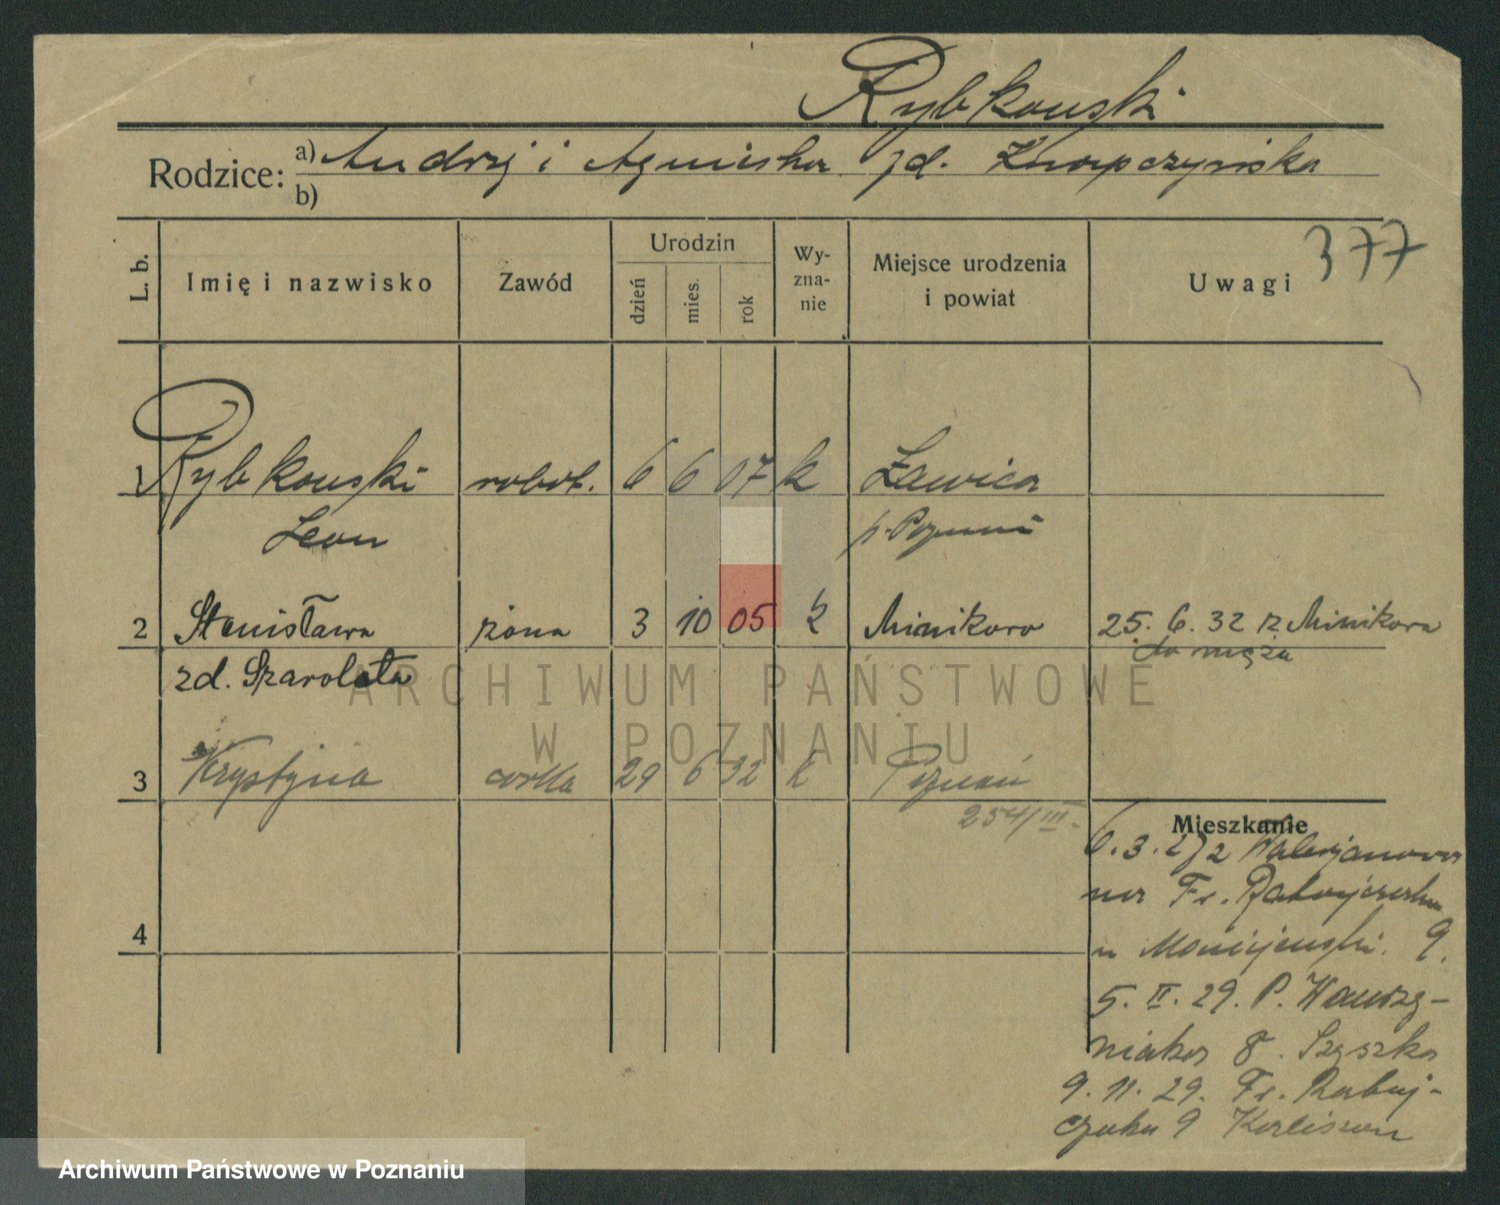 Rybkowski
Rodzice: a) Andrzej i Agnieszka zd. Knapczyńska
b)
377
L. b.
Imię i nazwisko
Zawód
Urodzin
dzień
mies.
rok
Wy-
zna-
nie
Miejsce urodzenia
i powiat
Uwagi
1 Rybkowski robot. 6 6 07 k Ławica
Leon p. Poznań
2 Stanisława żona 3 10 05 k Minikowo 25. 6. 32 z Minikowa
do męża
zd. Szarolata
3 Krystyna córka 29 6 32 k Poznań
254/III.
4
Mieszkanie
6. 3. Walerjanowo
Fr. Ratajczaka
9.
5. II. 29. P. Wawrzy-
niaka 8. Szyszka
9. 11. 29. Fr. Rataj-
czaka 9
ARCHIWUM PAŃSTWOWE
W POZNANIU
Archiwum Państwowe w Poznaniu